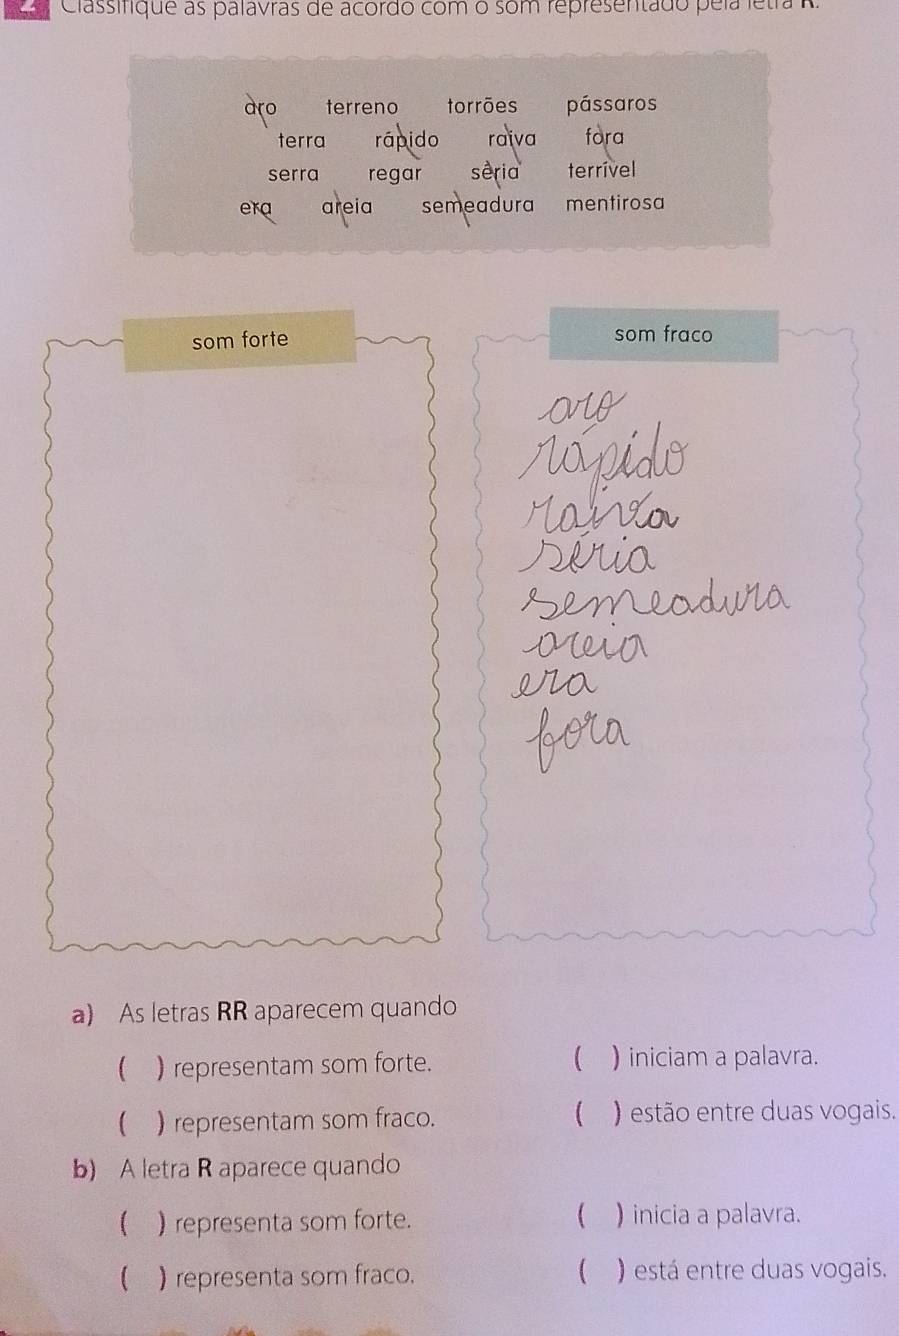 2 Classifique as palavras de acordo com o som representado pela letra R.
aro terreno torrões pássaros
terra rápido raiva fora
serra regar séria terrível
era areia semeadura mentirosa
som forte som fraco
aro
rápido
raiva
séria
semeadura
areia
era
fora
a) As letras RR aparecem quando
( ) representam som forte. ( ) iniciam a palavra.
( ) representam som fraco. ( ) estão entre duas vogais.
b) A letra R aparece quando
( ) representa som forte. ( ) inicia a palavra.
( ) representa som fraco. ( ) está entre duas vogais.